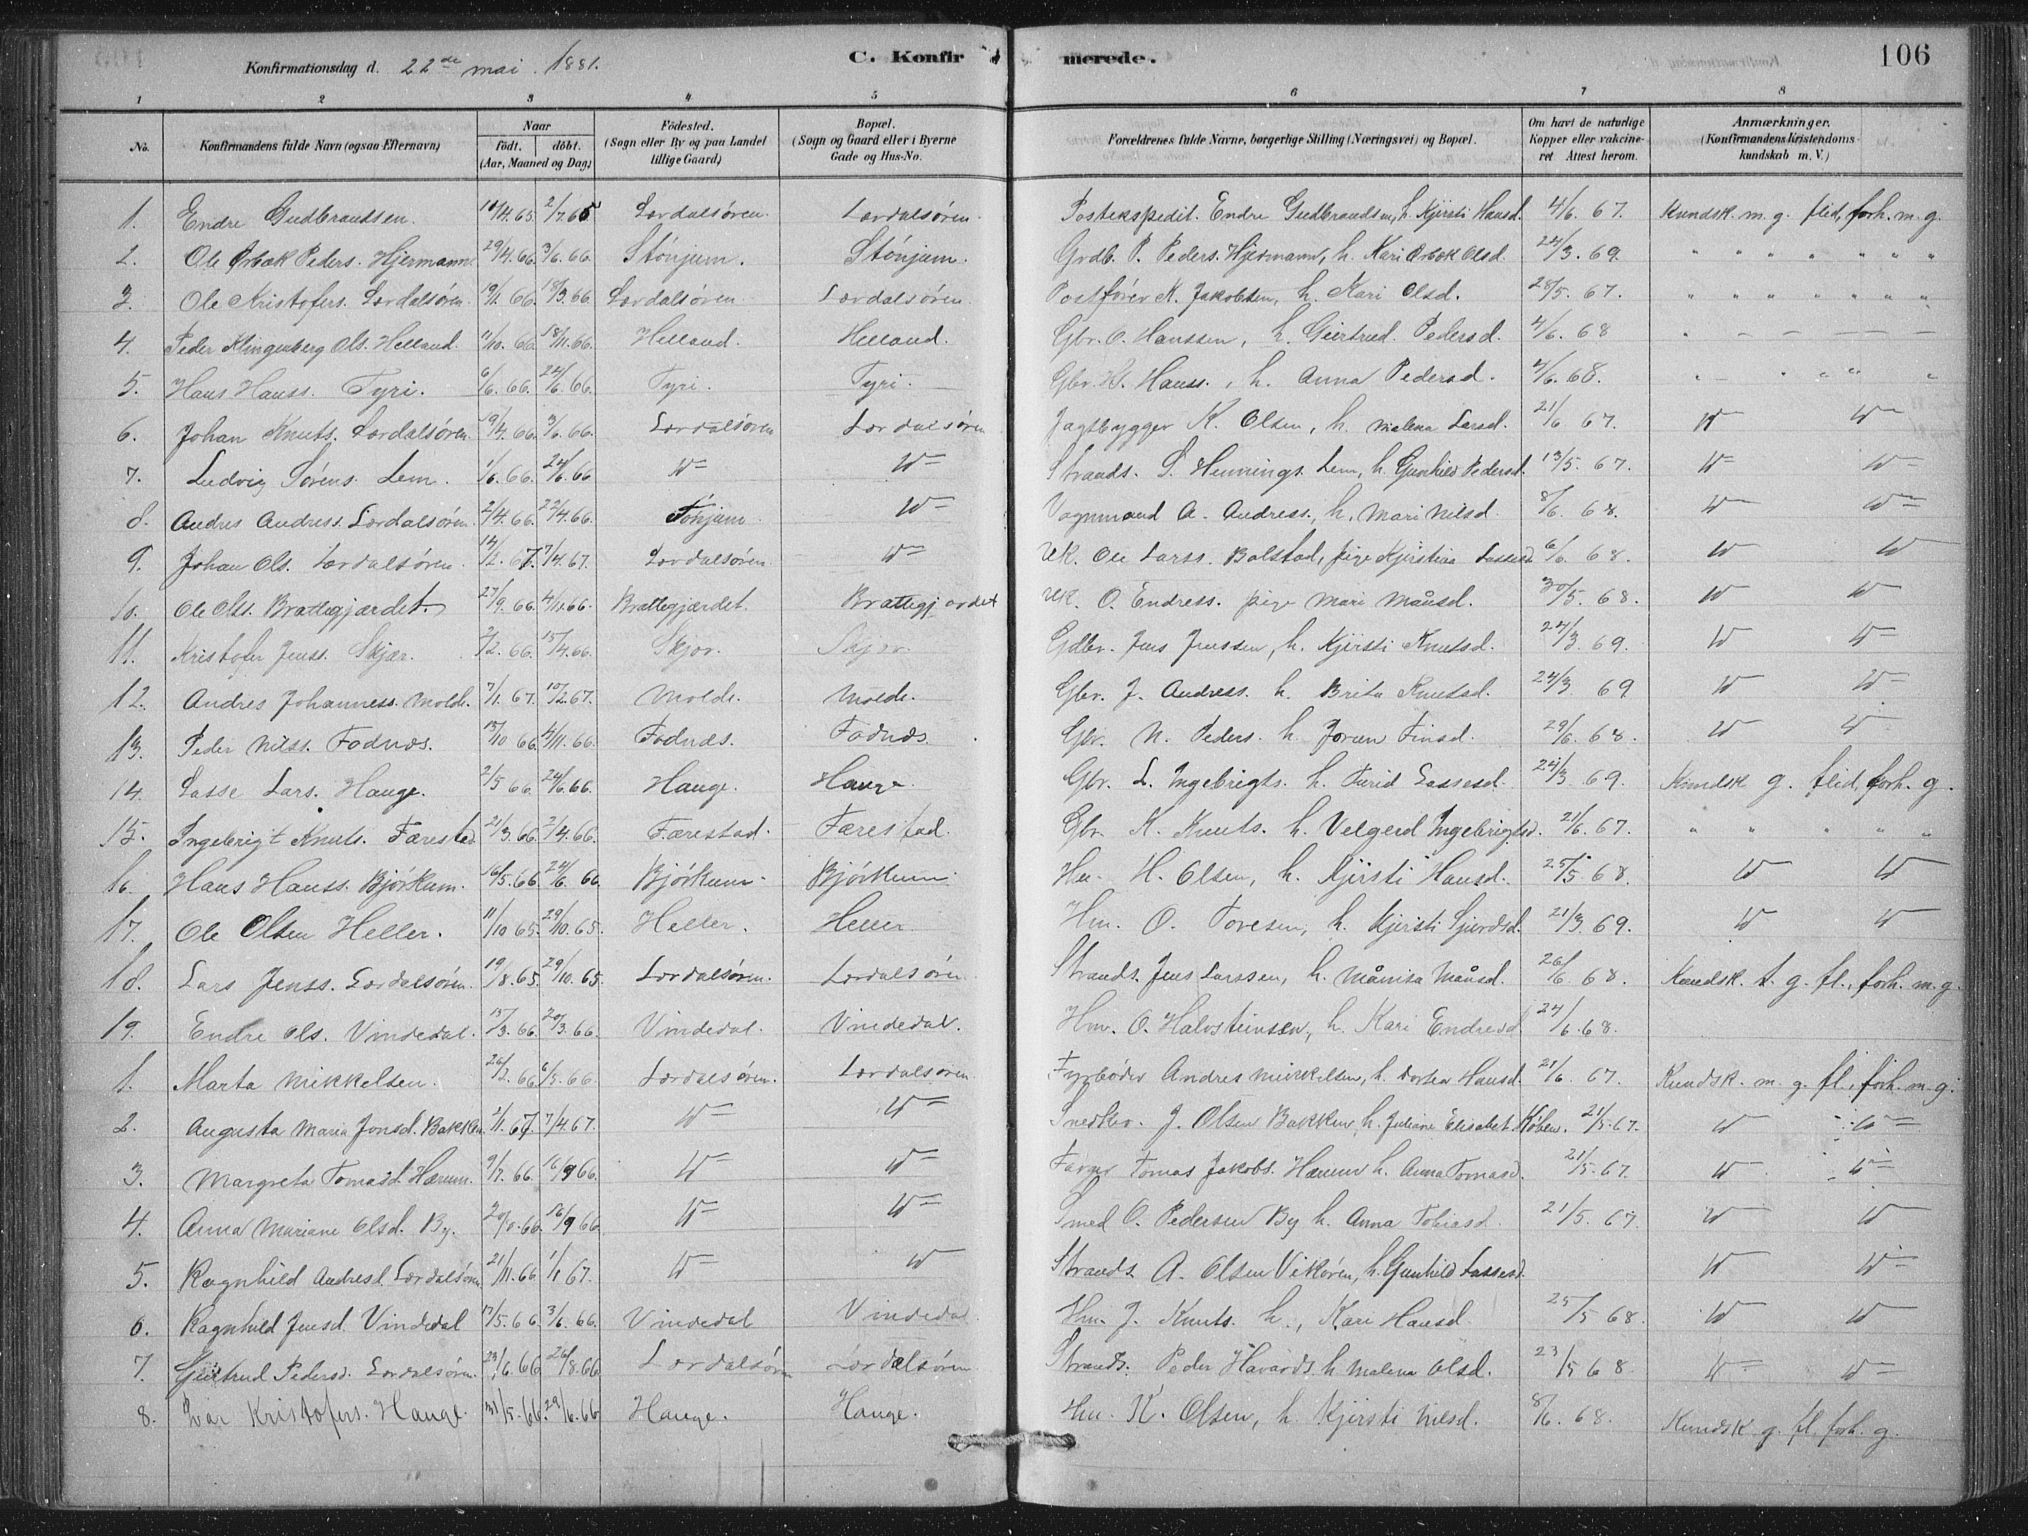 Konfirmationsdag d. 22de mai 1881. C. Konfirmerede. 106
1 2 3 4 5 6 7 8
No. Konfirmandens fulde Navn (ogsaa Efternavn) Naar født. døbt. (Aar, Maaned og Dag) Fødested. (Sogn eller By og paa Landet tillige Gaard) Bopæl. (Sogn og Gaard eller i Byerne Gade og Hus-No. Forældrenes fulde Navne, borgerlige Stilling (Næringsvei) og Bopæl. Om havt de naturlige Kopper eller vakcineret Attest herom. Anmærkninger. (Konfirmandens Kristendomskundskab m. V.)
1. Endre Gudbrandsen. 2/7.65 Lærdalsøren. Lærdalsøren. Postekspedit. Endre Gudbrandsen, h. Kjersti Hansd. 4/6. 67. Kundsk. m. g. flid, forh. m. g.
2. Ole Ørbæk Peders. Hjermann 29/4.66. 3/6.66. Stønjum. Stønjum. Grdb. P. Peders. Hjermann, h. Kari Ørbæk Olsd. 24/3 69. " " " " " " "
3. Ole Kristofers. Lærdalsøren 19/1.66 18/3.66 Lærdalsøren. Lærdalsøren. Postfører K. Jakobsen, h. Kari Olsd. 28/5. 67. " " " " " " "
4. Peder Klingenberg Ols. Helland. 11/10.66 18/11.66. Helland. Helland. Gbr. O. Hanssen, h. Geirtrud Pedersd. 4/6. 68 " – – – – – –
5. Hans Hanss. Tyri. 6/6.66. 24/6.66. Tyri. Tyri. Gbr. H. Hanss., h. Anna Pedersd. 4/6.68.
6. Johan Knuts. Lærdalsøren. 19/4.66. 3/6.66. Lærdalsøren Lærdalsøren Jagtbygger K. Olsen, h. Malena Larsd. 21/6 67.
7. Ludvig Sørens. Lem. 1/6.66. 24/6.66 Strands. S. Hennings. Lem, h. Gunhild Pedersd. 13/5. 67.
8. Andres Andress. Lærdalsøren 2/4.66. 22/4.66. Tønjum. Vognmand A. Andress., h. Mari Nilsd. 8/6. 68.
9. Johan Ols. Lærdalsøren. 14/2.67. 7/4.67. Lærdalsøren. Uk. Ole Larss. Bolstad, pige Kjerstina Lassesd. 6/6. 68.
10. Ole Ols. Brattegjærdet. 27/9.66. 4/11.66. Brattegjærdet. Brattegjærdet Uk. O. Endress. pige Mari Månsd. 30/5. 68.
11. Kristofer Jenss. Skjær. 2/2.66. 15/4.66. Skjær. Skjær. Gdbr. Jens Jenssen, h. Kjersti Knutsd. 24/3 69.
12. Andres Johanness. Molde. 7/1.67. 10/2.67. Molde. Molde. Gbr. J. Andress. h. Brita Knutsd. 24/3 69
13. Peder Nilss. Fodnæs. 13/10 66. 4/11.66. Fodnæs. Fodnæs. Gbr. N. Peders. h. Joren Finsd. 29/6. 68.
14. Lasse Lars. Hauge. 2/5 66. 24/6.66. Hauge. Hauge. Gbr. L. Ingebrigts. h. Turid Lassesd. 24/3 69. Kundsk g. flid, forh. g.
15. Ingebrigt Knuts. Færestad 21/3.66. 2/4.66. Færestad. Færestad. Gbr. K. Knuts. h. Velgerd Ingebrigtsd. 21/6.67. " " " " "
16. Hans Hanss. Bjørkum. 16/5.66. 24/6 66. Bjørkum. Bjørkum. Hu. H. Olsen, h. Kjersti Hansd. 25/5. 68.
17. Ole Olsen Heller. 11/10 65. 29/10.65. Heller. Heller. Hm. O. Toresen, h. Kjersti Sjurdsd. 21/3 69.
18. Lars Jenss. Lærdalsøren. 19/8.65. 29/10.65 Lærdalsøren. Lærdalsøren Strands. Jens Larssen, h. Månsd. 26/6. 68. Kundsk. t. g. fl., forh. m. g.
19. Endre Ols. Vindedal. 13/3.66. 20/3.66. Vindedal. Vindedal. Hm. O. Halvsteinsen, h. Kari Endresd. 24/6.68.
1. Marta Mikkelsen. 26/2.66. 6/5.66. Lærdalsøren. Lærdalsøren. Fyrbøder Andres Mikkelsen, h. Dortea Hansd. 21/6 67. Kundsk. m. g. fl., forh. m. g.
2. Augusta Maria Jonsd. Bakken 2/1.67. 7/4.67. Snedker. J. Olsen Bakken, h. Juliane Elisabet Købln. 21/5.67.
3. Margreta Tomasd. Hærum. 9/7.66. 16/9 66. Farver Tomas Jakobs. Hærum h. Anna Tomasd. 21/5.67
4. Anna Mariane Olsd. By. 16/9 66. Smed O. Pedersen By h. Anna Tobiasd. 21/5. 67.
5. Ragnhild Andresd. Lærdalsøren 21/11.66 1/1 67. Strands. A. Olsen Vikøren, h. Gunhild Lassesd.
6. Ragnhild Jensd. Vindedal 17/5.66 3/6.66. Vindedal Vindedal. Hm. J. Knuts. h., Kari Hansd. 25/5 68.
7. Gjertrud Pedersd. Lærdalsøren. 23/6.66 26/8.66 Lærdalsøren Lærdalsøren Strands. Peder Håvards. h. Malena Olsd. 23/5 68.
8. Ivar Kristofers. Hauge. 31/5.66. 29/6.66 Hauge. Hauge. Hm. K. Olsen, h. Kjersti Nilsd. 8/6. 68. Kundsk g. fl. forh. g.